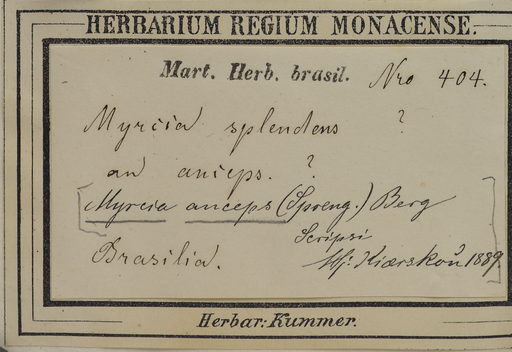 HERBARIUM REGIUM MONACENSE.
Mart. Herb. brasil. Nro 404.
Myrcia splendens ?
an anceps. ?
Myrcia anceps (Spreng.) Berg
Scripsi
Brasilia. Hj: Kiærskou 1889.
Herbar: Kummer.